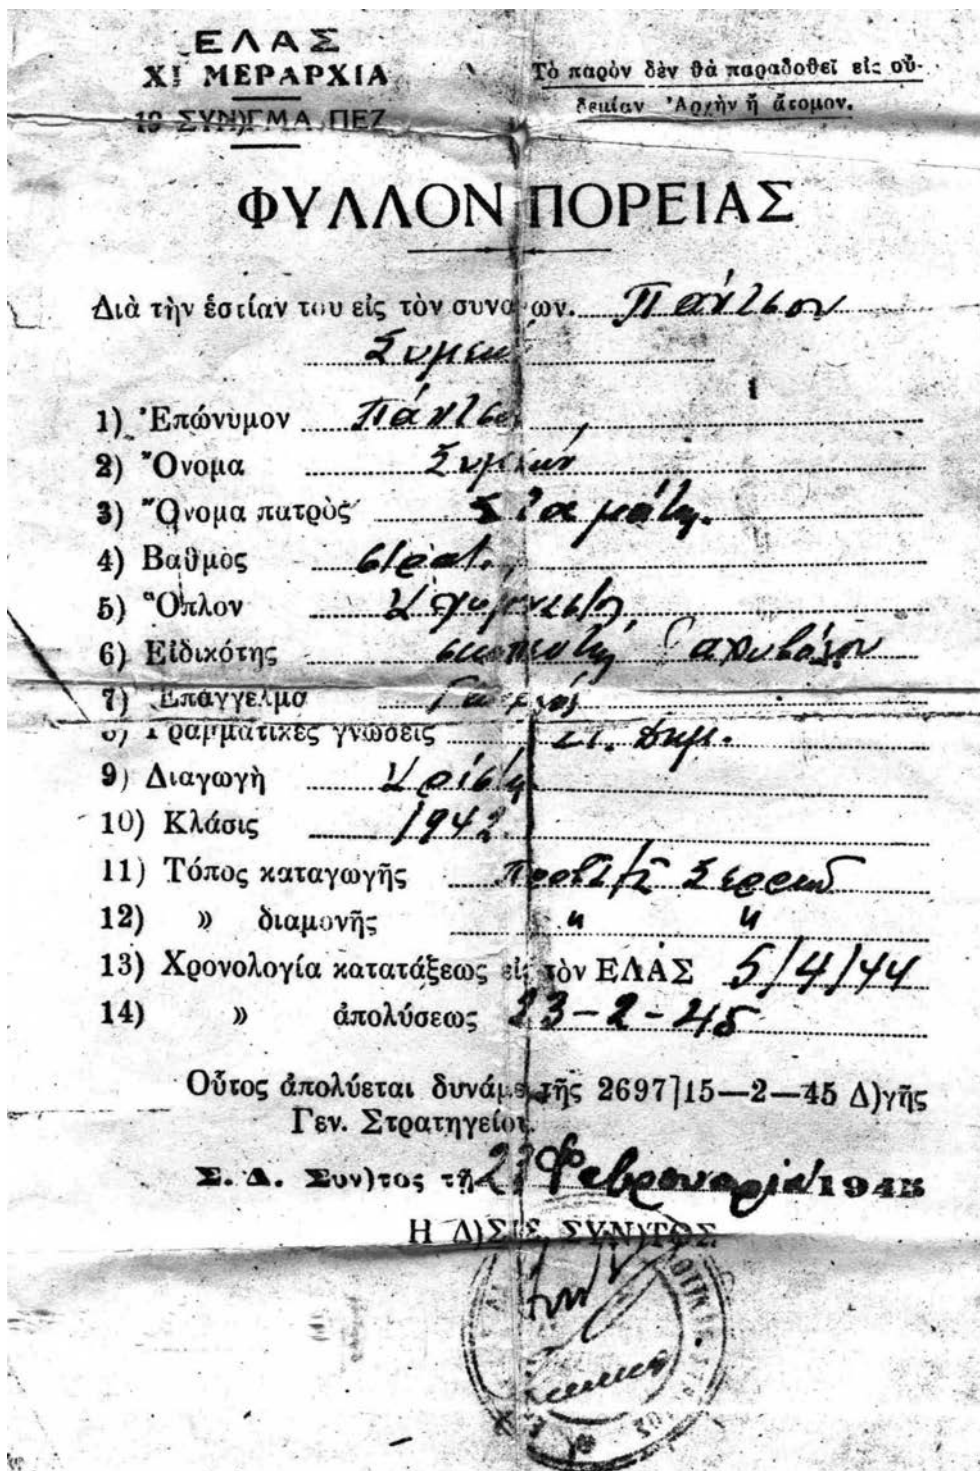 ΕΛΑΣ
ΧΙ ΜΕΡΑΡΧΙΑ
ΣΥΝ)ΓΜΑ ΠΕΖ
Τὸ παρὸν δὲν θὰ παραδοθεῖ εἰς οὐ-
δεμίαν Ἀρχὴν ἢ ἄτομον.
ΦΥΛΛΟΝ ΠΟΡΕΙΑΣ
Διὰ τὴν ἑστίαν του εἰς τὸν συναγων. Πάντσον
Συμεὼν
1) Ἐπώνυμον Πάντσος
2) Ὄνομα Συμεών
3) Ὄνομα πατρὸς Σταμάτη.
4) Βαθμὸς στρατ.
5) Ὅπλον
6) Εἰδικότης σκοπευτὴς
7) Ἐπάγγελμα Γεωργός
8) Γραμματικὲς γνώσεις Δημ.
9) Διαγωγὴ Χρίστη
10) Κλάσις 1942
11) Τόπος καταγωγῆς Σερρῶν
12) » διαμονῆς " "
13) Χρονολογία κατατάξεως εἰς τὸν ΕΛΑΣ 5/4/44
14) » ἀπολύσεως 23-2-45
Οὗτος ἀπολύεται δυνάμει τῆς 2697]15—2—45 Δ)γῆς
Γεν. Στρατηγείου.
Σ. Δ. Συν)τος τῇ Φεβρουαρίου 1945
Η Δ)ΣΙΣ ΣΥΝ)ΤΟΣ